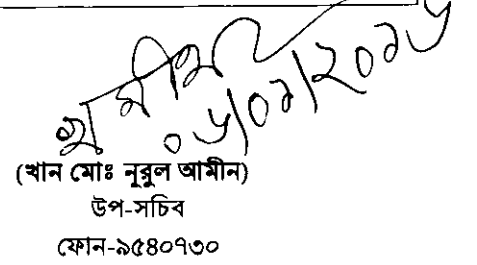 ০৬/০১/২০১৬
(খান মোঃ নূরুল আমীন)
উপ-সচিব
ফোন-৯৫৪০৭৩০